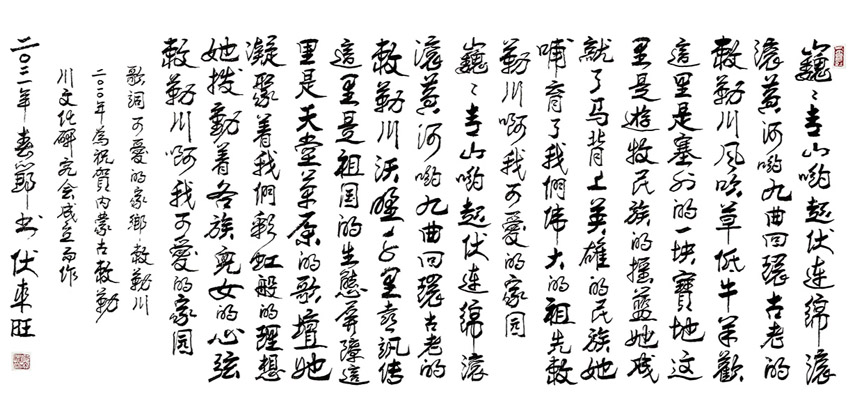 巍巍青山哟起伏连绵滚
滚黄河哟九曲回环古老的
敕勒川风吹草低牛羊歡
這里是塞外的一块寶地这
里是遊牧民族的摇蓝她成
就了马背上英雄的民族她
哺育了我們伟大的祖先敕
勒川啊我可爱的家园
巍巍青山哟起伏连绵滚
滚黄河哟九曲回環古老的
敕勒川沃野千里音讯传
這里是祖国的生態屏障這
里是天堂草原的歌壇她
凝聚着我們彩虹般的理想
她拨動着各族兒女的心弦
敕勒川啊我可爱的家园
歌词可愛的家鄉敕勒川
二〇〇年為祝賀内蒙古敕勒
川文化研究会成立而作
二〇二一年春節书伏来旺